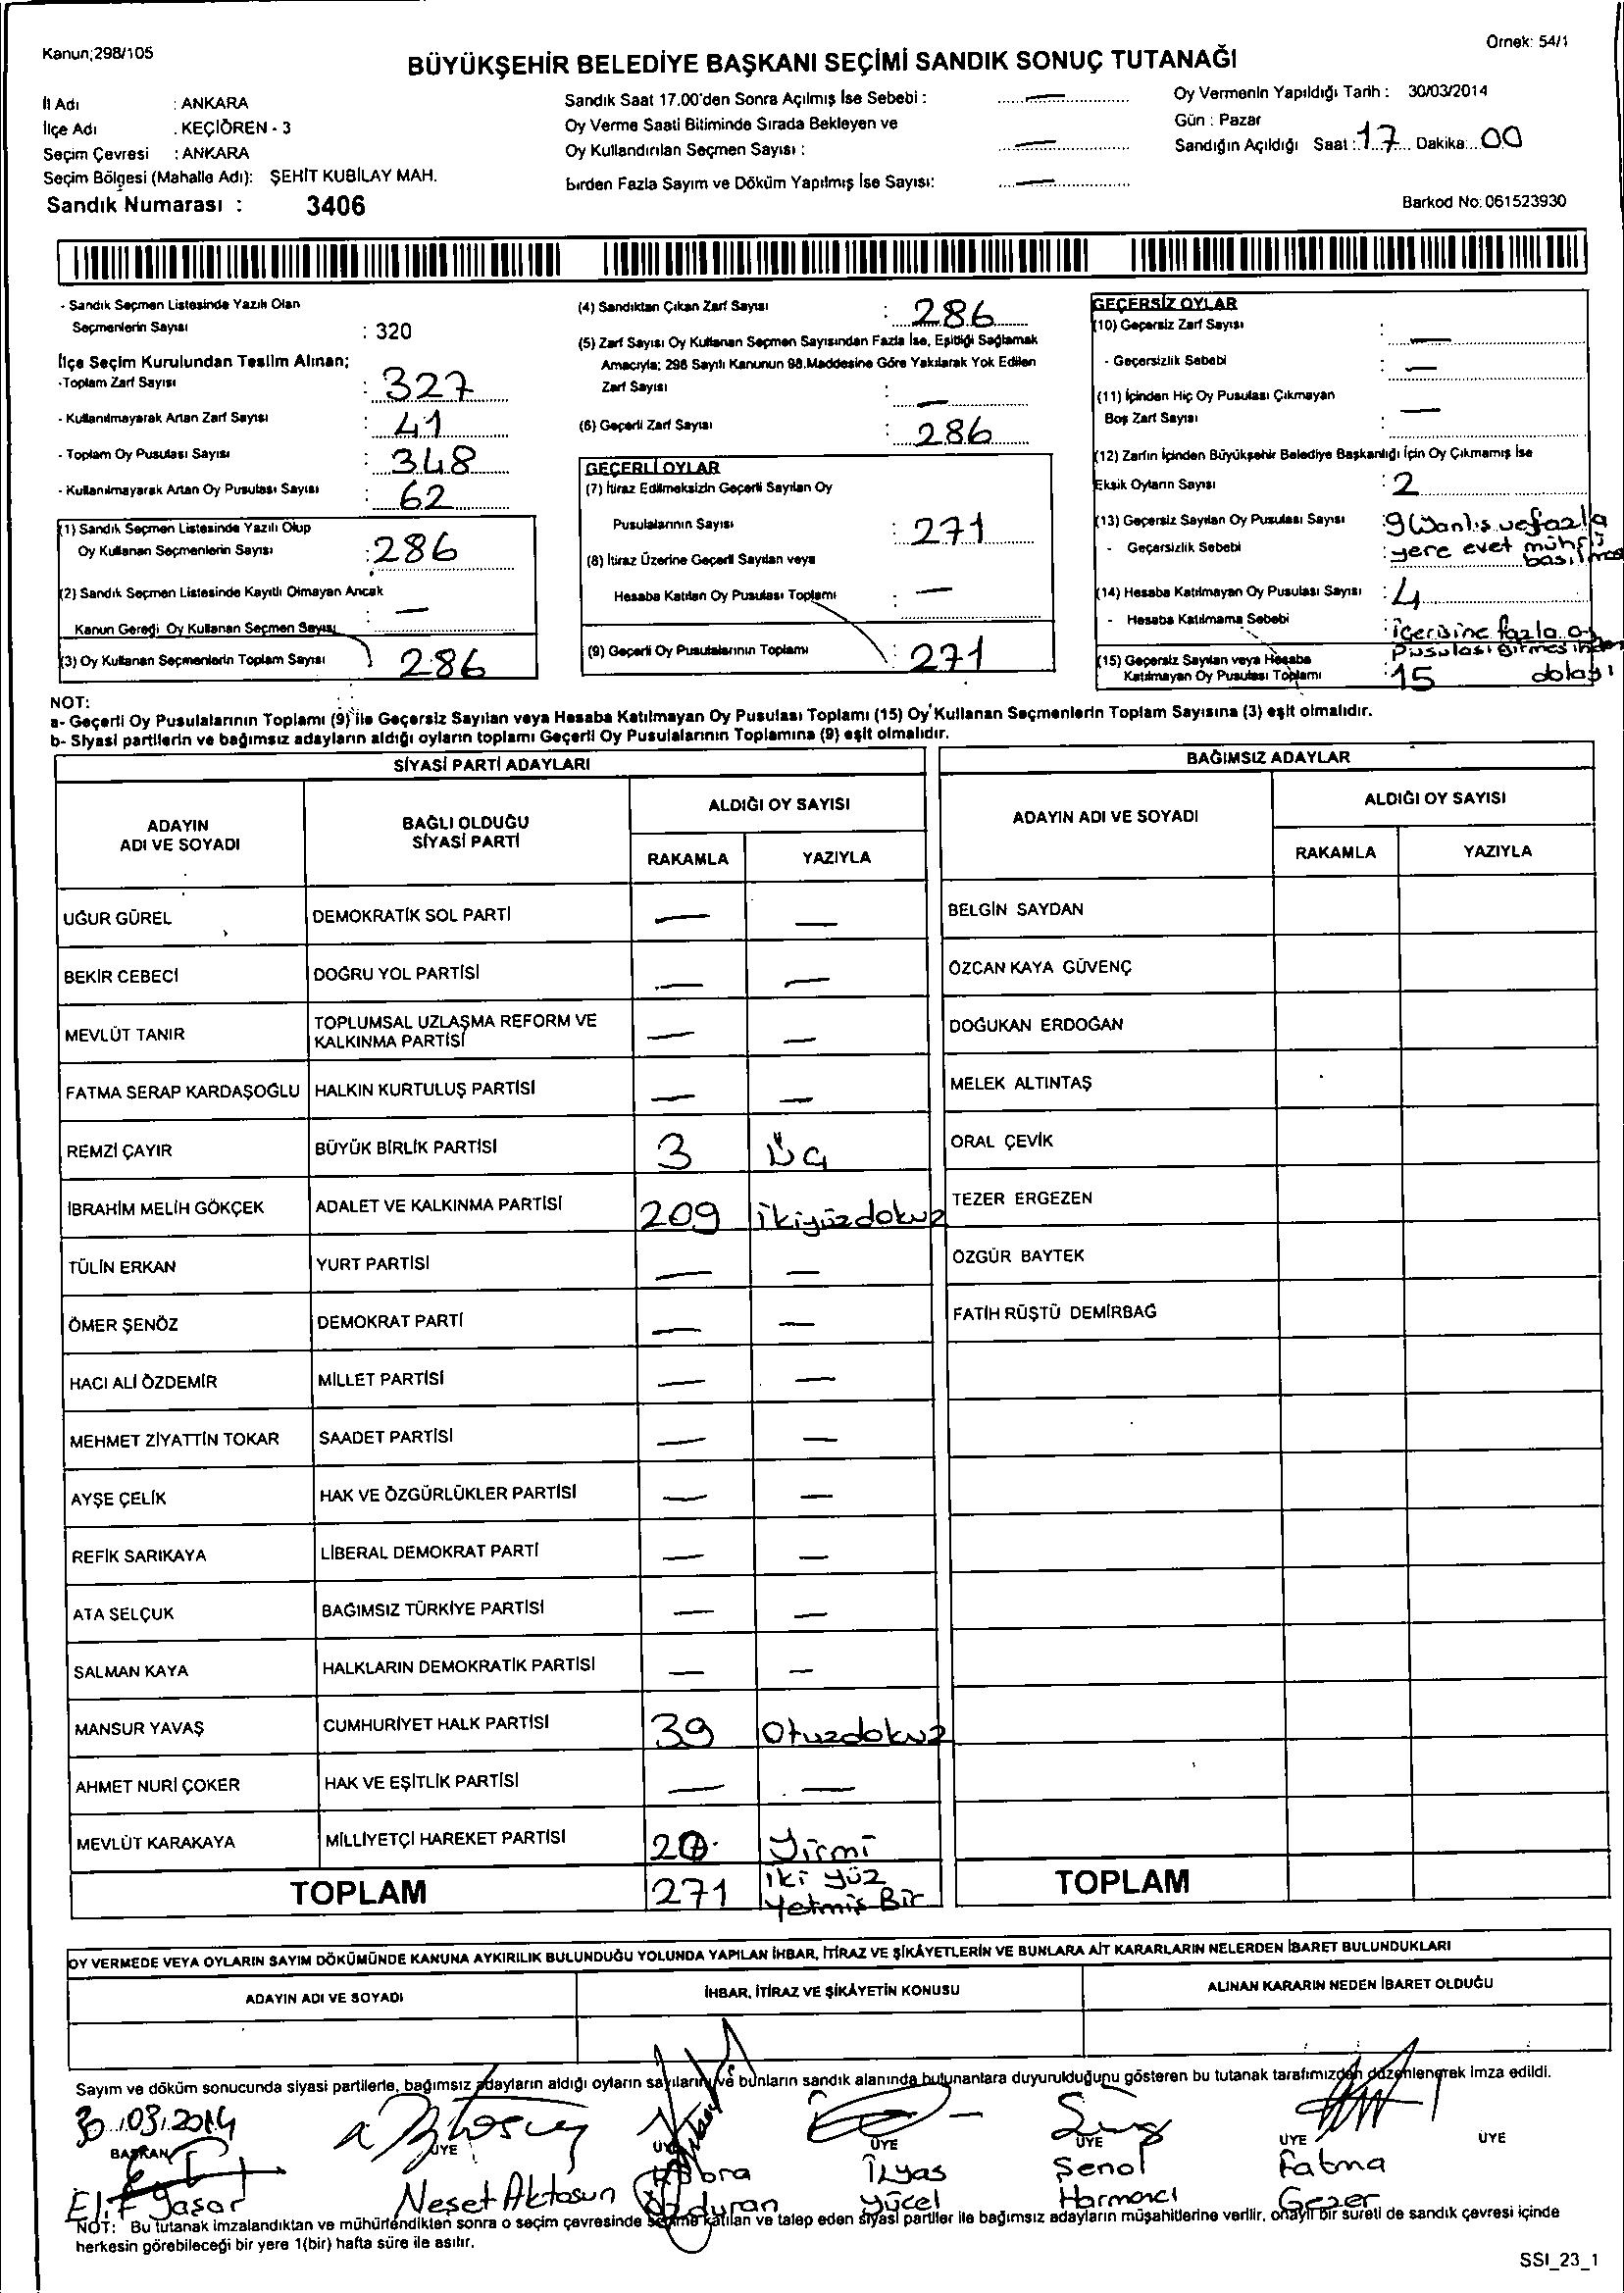 Kanun;298/105
Örnek: 54/1
BÜYÜKŞEHİR BELEDİYE BAŞKANI SEÇİMİ SANDIK SONUÇ TUTANAĞI
İl Adı : ANKARA
İlçe Adı . KEÇİÖREN - 3
Seçim Çevresi : ANKARA
Seçim Bölgesi (Mahalle Adı): ŞEHİT KUBİLAY MAH.
Sandık Numarası : 3406
Sandık Saat 17.00'den Sonra Açılmış İse Sebebi : —
Oy Verme Saati Bitiminde Sırada Bekleyen ve
Oy Kullandırılan Seçmen Sayısı : —
birden Fazla Sayım ve Döküm Yapılmış İse Sayısı: —
Oy Vermenin Yapıldığı Tarih : 30/03/2014
Gün : Pazar
Sandığın Açıldığı Saat : 17 Dakika: 00
Barkod No: 061523930
- Sandık Seçmen Listesinde Yazılı Olan
Seçmenlerin Sayısı : 320
İlçe Seçim Kurulundan Teslim Alınan;
-Toplam Zarf Sayısı : 327
- Kullanılmayarak Artan Zarf Sayısı : 41
- Toplam Oy Pusulası Sayısı : 348
- Kullanılmayarak Artan Oy Pusulası Sayısı : 62
(1) Sandık Seçmen Listesinde Yazılı Olup
Oy Kullanan Seçmenlerin Sayısı : 286
(2) Sandık Seçmen Listesinde Kayıtlı Olmayan Ancak
Kanun Gereği Oy Kullanan Seçmen Sayısı : —
(3) Oy Kullanan Seçmenlerin Toplam Sayısı 286
(4) Sandıktan Çıkan Zarf Sayısı : 286
(5) Zarf Sayısı Oy Kullanan Seçmen Sayısından Fazla İse, Eşitliği Sağlamak
Amacıyla; 298 Sayılı Kanunun 98.Maddesine Göre Yakılarak Yok Edilen
Zarf Sayısı : —
(6) Geçerli Zarf Sayısı : 286
GEÇERLİ OYLAR
(7) İtiraz Edilmeksizin Geçerli Sayılan Oy
Pusulalarının Sayısı : 271
(8) İtiraz Üzerine Geçerli Sayılan veya
Hesaba Katılan Oy Pusulası Toplamı : —
(9) Geçerli Oy Pusulalarının Toplamı : 271
GEÇERSİZ OYLAR
(10) Geçersiz Zarf Sayısı : —
- Geçersizlik Sebebi : —
(11) İçinden Hiç Oy Pusulası Çıkmayan
Boş Zarf Sayısı : —
(12) Zarfın İçinden Büyükşehir Belediye Başkanlığı İçin Oy Çıkmamış İse
Eksik Oyların Sayısı : 2
(13) Geçersiz Sayılan Oy Pusulası Sayısı : 9 (Yanlış ve fazla
- Geçersizlik Sebebi : yere evet mührü
(14) Hesaba Katılmayan Oy Pusulası Sayısı : 4
- Hesaba Katılmama Sebebi : içerisine fazla oy
pusulası girmesinden
(15) Geçersiz Sayılan veya Hesaba
Katılmayan Oy Pusulası Toplamı : 15 dolayı
NOT:
a- Geçerli Oy Pusulalarının Toplamı (9) ile Geçersiz Sayılan veya Hesaba Katılmayan Oy Pusulası Toplamı (15) Oy Kullanan Seçmenlerin Toplam Sayısına (3) eşit olmalıdır.
b- Siyasi partilerin ve bağımsız adayların aldığı oyların toplamı Geçerli Oy Pusulalarının Toplamına (9) eşit olmalıdır.
SİYASİ PARTİ ADAYLARI
ADAYIN ADI VE SOYADI
BAĞLI OLDUĞU SİYASİ PARTİ
ALDIĞI OY SAYISI
RAKAMLA YAZIYLA
UĞUR GÜREL DEMOKRATİK SOL PARTİ — —
BEKİR CEBECİ DOĞRU YOL PARTİSİ — —
MEVLÜT TANIR TOPLUMSAL UZLAŞMA REFORM VE KALKINMA PARTİSİ — —
FATMA SERAP KARDAŞOĞLU HALKIN KURTULUŞ PARTİSİ — —
REMZİ ÇAYIR BÜYÜK BİRLİK PARTİSİ 3 Üç
İBRAHİM MELİH GÖKÇEK ADALET VE KALKINMA PARTİSİ 209 ikiyüzdokuz
TÜLİN ERKAN YURT PARTİSİ — —
ÖMER ŞENÖZ DEMOKRAT PARTİ — —
HACI ALİ ÖZDEMİR MİLLET PARTİSİ — —
MEHMET ZİYATTİN TOKAR SAADET PARTİSİ — —
AYŞE ÇELİK HAK VE ÖZGÜRLÜKLER PARTİSİ — —
REFİK SARIKAYA LİBERAL DEMOKRAT PARTİ — —
ATA SELÇUK BAĞIMSIZ TÜRKİYE PARTİSİ — —
SALMAN KAYA HALKLARIN DEMOKRATİK PARTİSİ — —
MANSUR YAVAŞ CUMHURİYET HALK PARTİSİ 39 Otuzdokuz
AHMET NURİ ÇOKER HAK VE EŞİTLİK PARTİSİ — —
MEVLÜT KARAKAYA MİLLİYETÇİ HAREKET PARTİSİ 20 Yirmi
TOPLAM 271 iki yüz yetmiş Bir
BAĞIMSIZ ADAYLAR
ADAYIN ADI VE SOYADI
ALDIĞI OY SAYISI
RAKAMLA YAZIYLA
BELGİN SAYDAN
ÖZCAN KAYA GÜVENÇ
DOĞUKAN ERDOĞAN
MELEK ALTINTAŞ
ORAL ÇEVİK
TEZER ERGEZEN
ÖZGÜR BAYTEK
FATİH RÜŞTÜ DEMİRBAĞ
TOPLAM
OY VERMEDE VEYA OYLARIN SAYIM DÖKÜMÜNDE KANUNA AYKIRILIK BULUNDUĞU YOLUNDA YAPILAN İHBAR, İTİRAZ VE ŞİKÂYETLERİN VE BUNLARA AİT KARARLARIN NELERDEN İBARET BULUNDUKLARI
ADAYIN ADI VE SOYADI
İHBAR, İTİRAZ VE ŞİKÂYETİN KONUSU
ALINAN KARARIN NEDEN İBARET OLDUĞU
Sayım ve döküm sonucunda siyasi partilerle, bağımsız adayların aldığı oyların sayılarını ve bunların sandık alanında bulunanlara duyurulduğunu gösteren bu tutanak tarafımızdan düzenlenerek imza edildi.
30.03.2014
BAŞKAN ÜYE ÜYE ÜYE ÜYE ÜYE ÜYE
Elif Yaşar
Neşet Aktosun
Kübra Özduran
İlyas Yücel
Şenol Harmancı
Fatma Gezer
NOT: Bu tutanak imzalandıktan ve mühürlendikten sonra o seçim çevresinde seçime katılan ve talep eden siyasi partiler ile bağımsız adayların müşahitlerine verilir, onaylı bir sureti de sandık çevresi içinde
herkesin görebileceği bir yere 1(bir) hafta süre ile asılır.
SSI_23_1